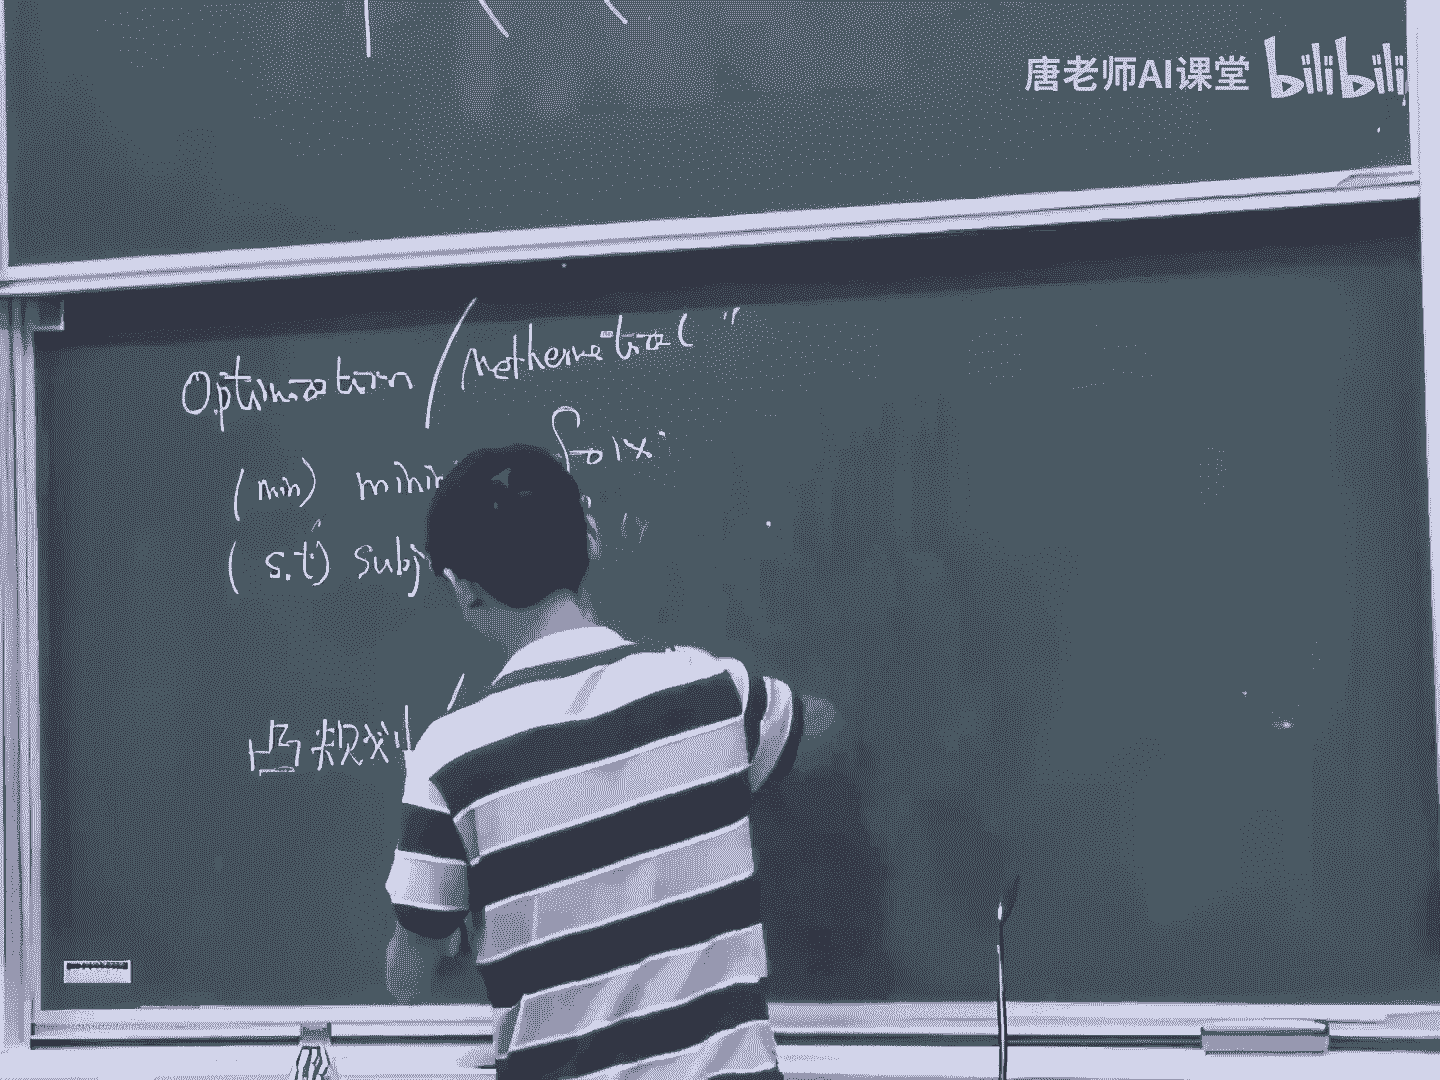 唐老师AI课堂 bilibili
Optimization / mathematical
(min) mini f₀(x
(s.t) subj
凸规划